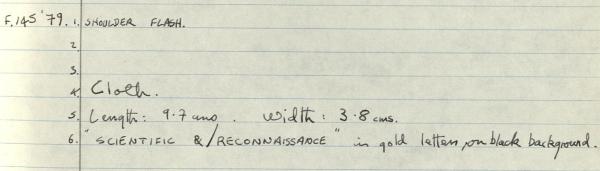 F.145 '79. 1. SHOULDER FLASH.
2.
3.
4. Cloth.
5. Length: 9.7 cms. Width: 3.8 cms.
6. "SCIENTIFIC & / RECONNAISSANCE" in gold letters, on black background.